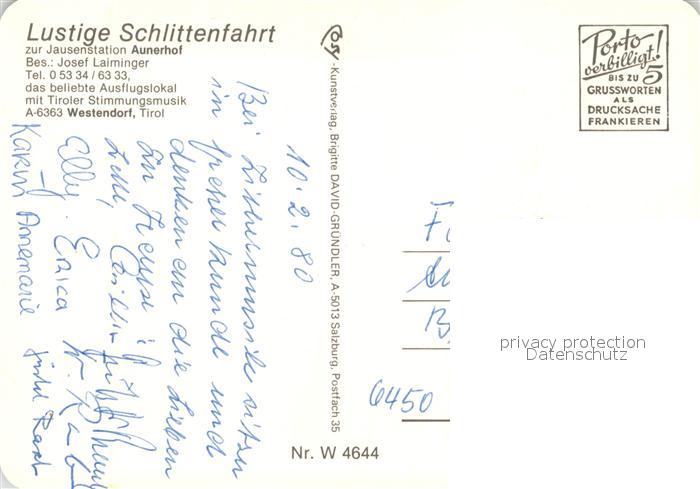 Lustige Schlittenfahrt
zur Jausenstation Aunerhof
Bes.: Josef Laiminger
Tel. 0 53 34 / 63 33,
das beliebte Ausflugslokal
mit Tiroler Stimmungsmusik
A-6363 Westendorf, Tirol
Cosy-Kunstverlag, Brigitte DAVID-GRÜNDLER, A-5013 Salzburg, Postfach 35
Porto
verbilligt!
BIS ZU 5
GRUSSWORTEN
ALS
DRUCKSACHE
FRANKIEREN
10.2.80
Bei Zithermusik sitzen
in froher Runde und
denken an die Lieben
zu Hause
Elly Erica
Karin Annemarie
6450
Nr. W 4644
privacy protection
Datenschutz